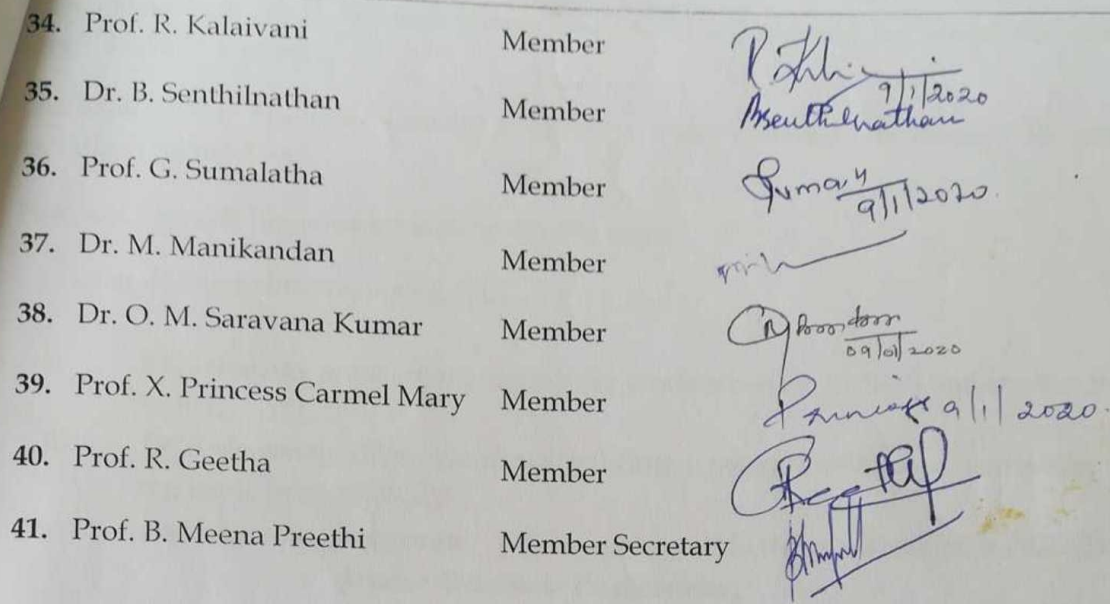 34. Prof. R. Kalaivani Member
9/1/2020
35. Dr. B. Senthilnathan Member Bsenthilnathan
36. Prof. G. Sumalatha Member
9/1/2020
37. Dr. M. Manikandan Member
38. Dr. O. M. Saravana Kumar Member
09/01/2020
39. Prof. X. Princess Carmel Mary Member 9/1/2020
40. Prof. R. Geetha Member
41. Prof. B. Meena Preethi Member Secretary